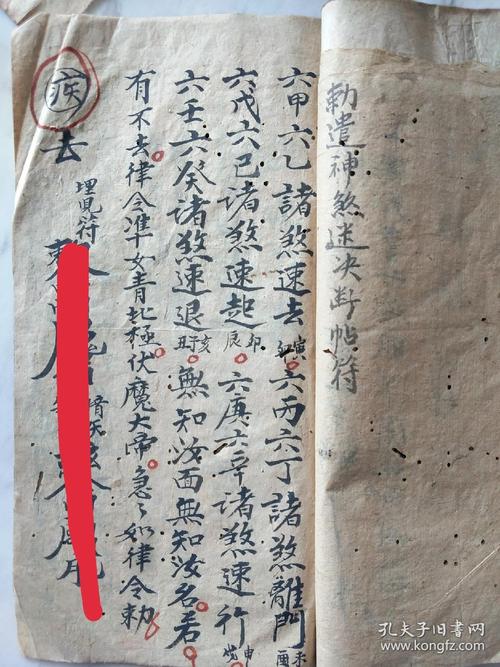 勅遣神煞速决断帖符
六甲六乙諸煞速去寅卯六丙六丁諸煞離門未酉
六戊六己諸煞速起卯辰六庚六辛諸煞速行申戌
六壬六癸诸煞速退亥子丑無知汝面無知汝名若
有不去律令凖女青北極伏魔大帝急々如律令勅
疾去
埋児符
孔夫子旧书网
www.kongfz.com